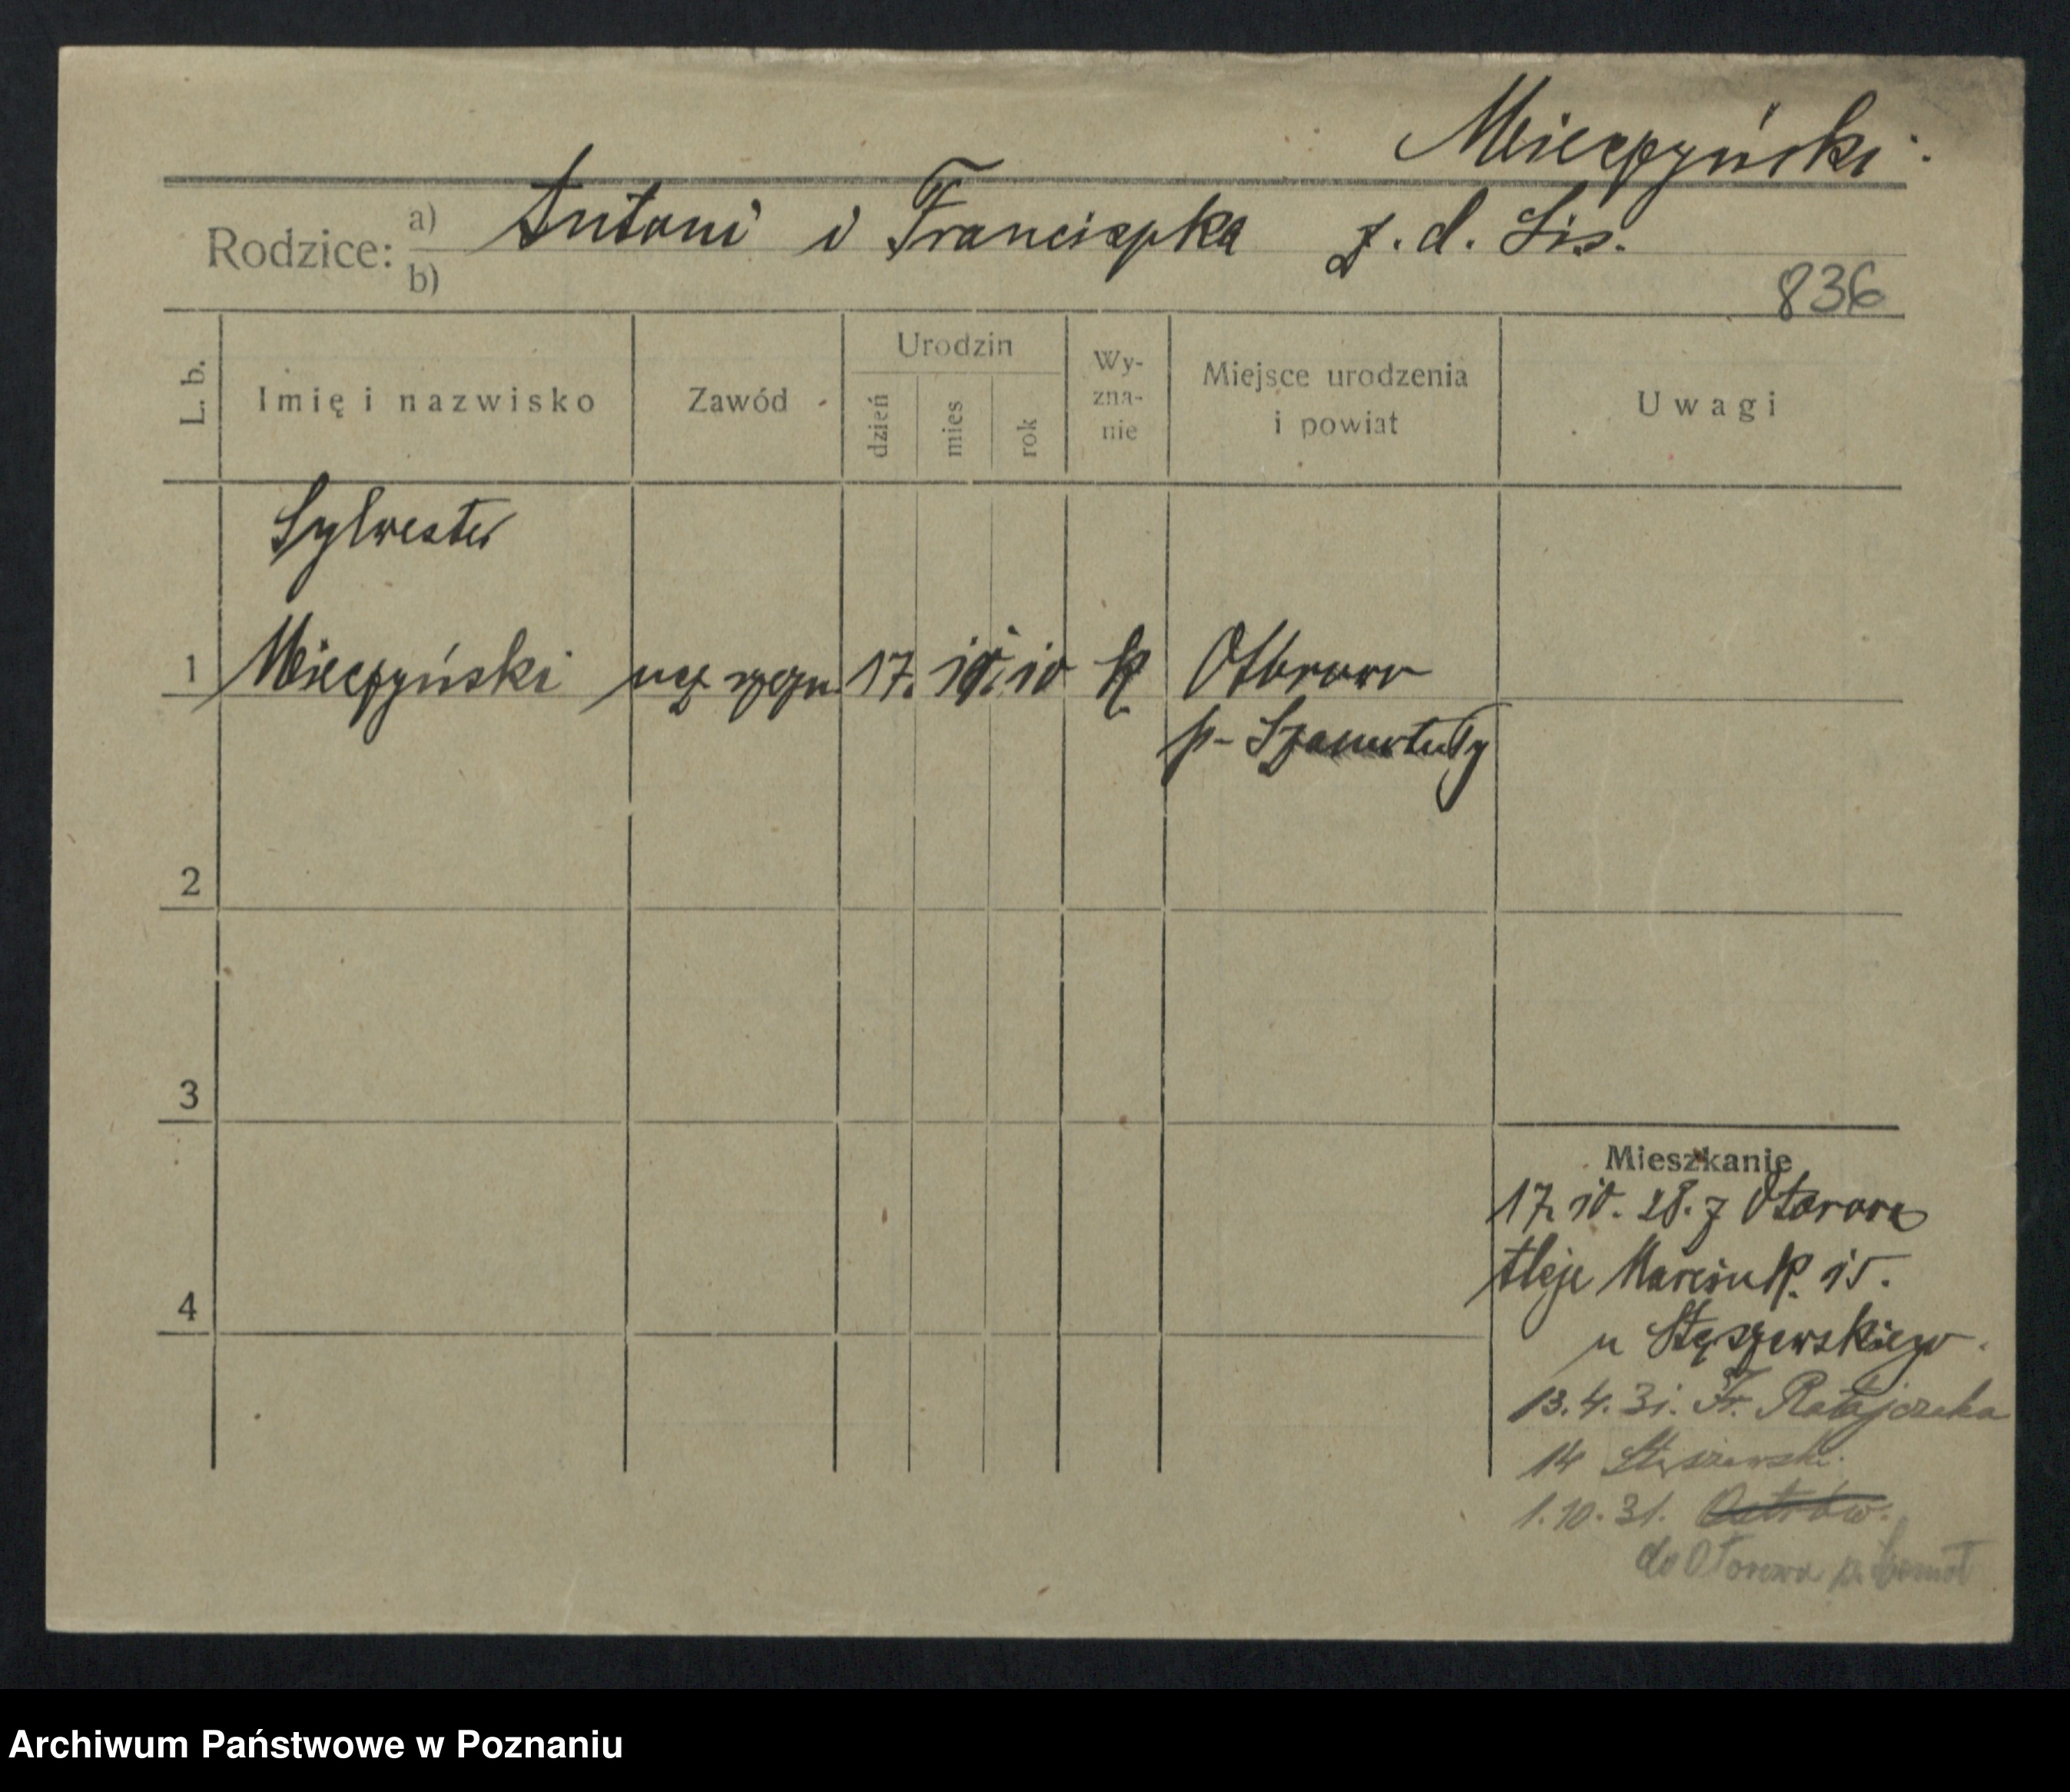 Mieczyński.
Rodzice: a) Antoni i Franciszka z. d. Lis.
b)
836
L. b.
Imię i nazwisko
Zawód
Urodzin
dzień
mies
rok
Wy-
zna-
nie
Miejsce urodzenia
i powiat
Uwagi
Sylwester
1 Mieczyński ucz 17. 10 k Otorowo
p- Szamotuły
2
3
4
Mieszkanie
17. 10. 28. z Otorowa
tleje Marcink. 15.
u Stęszewskiego.
13. 4. 31. Fr. Ratajczaka
14 Stęszewski.
1. 10. 31. Ostrów.
do Otorowa p. Szamot
Archiwum Państwowe w Poznaniu